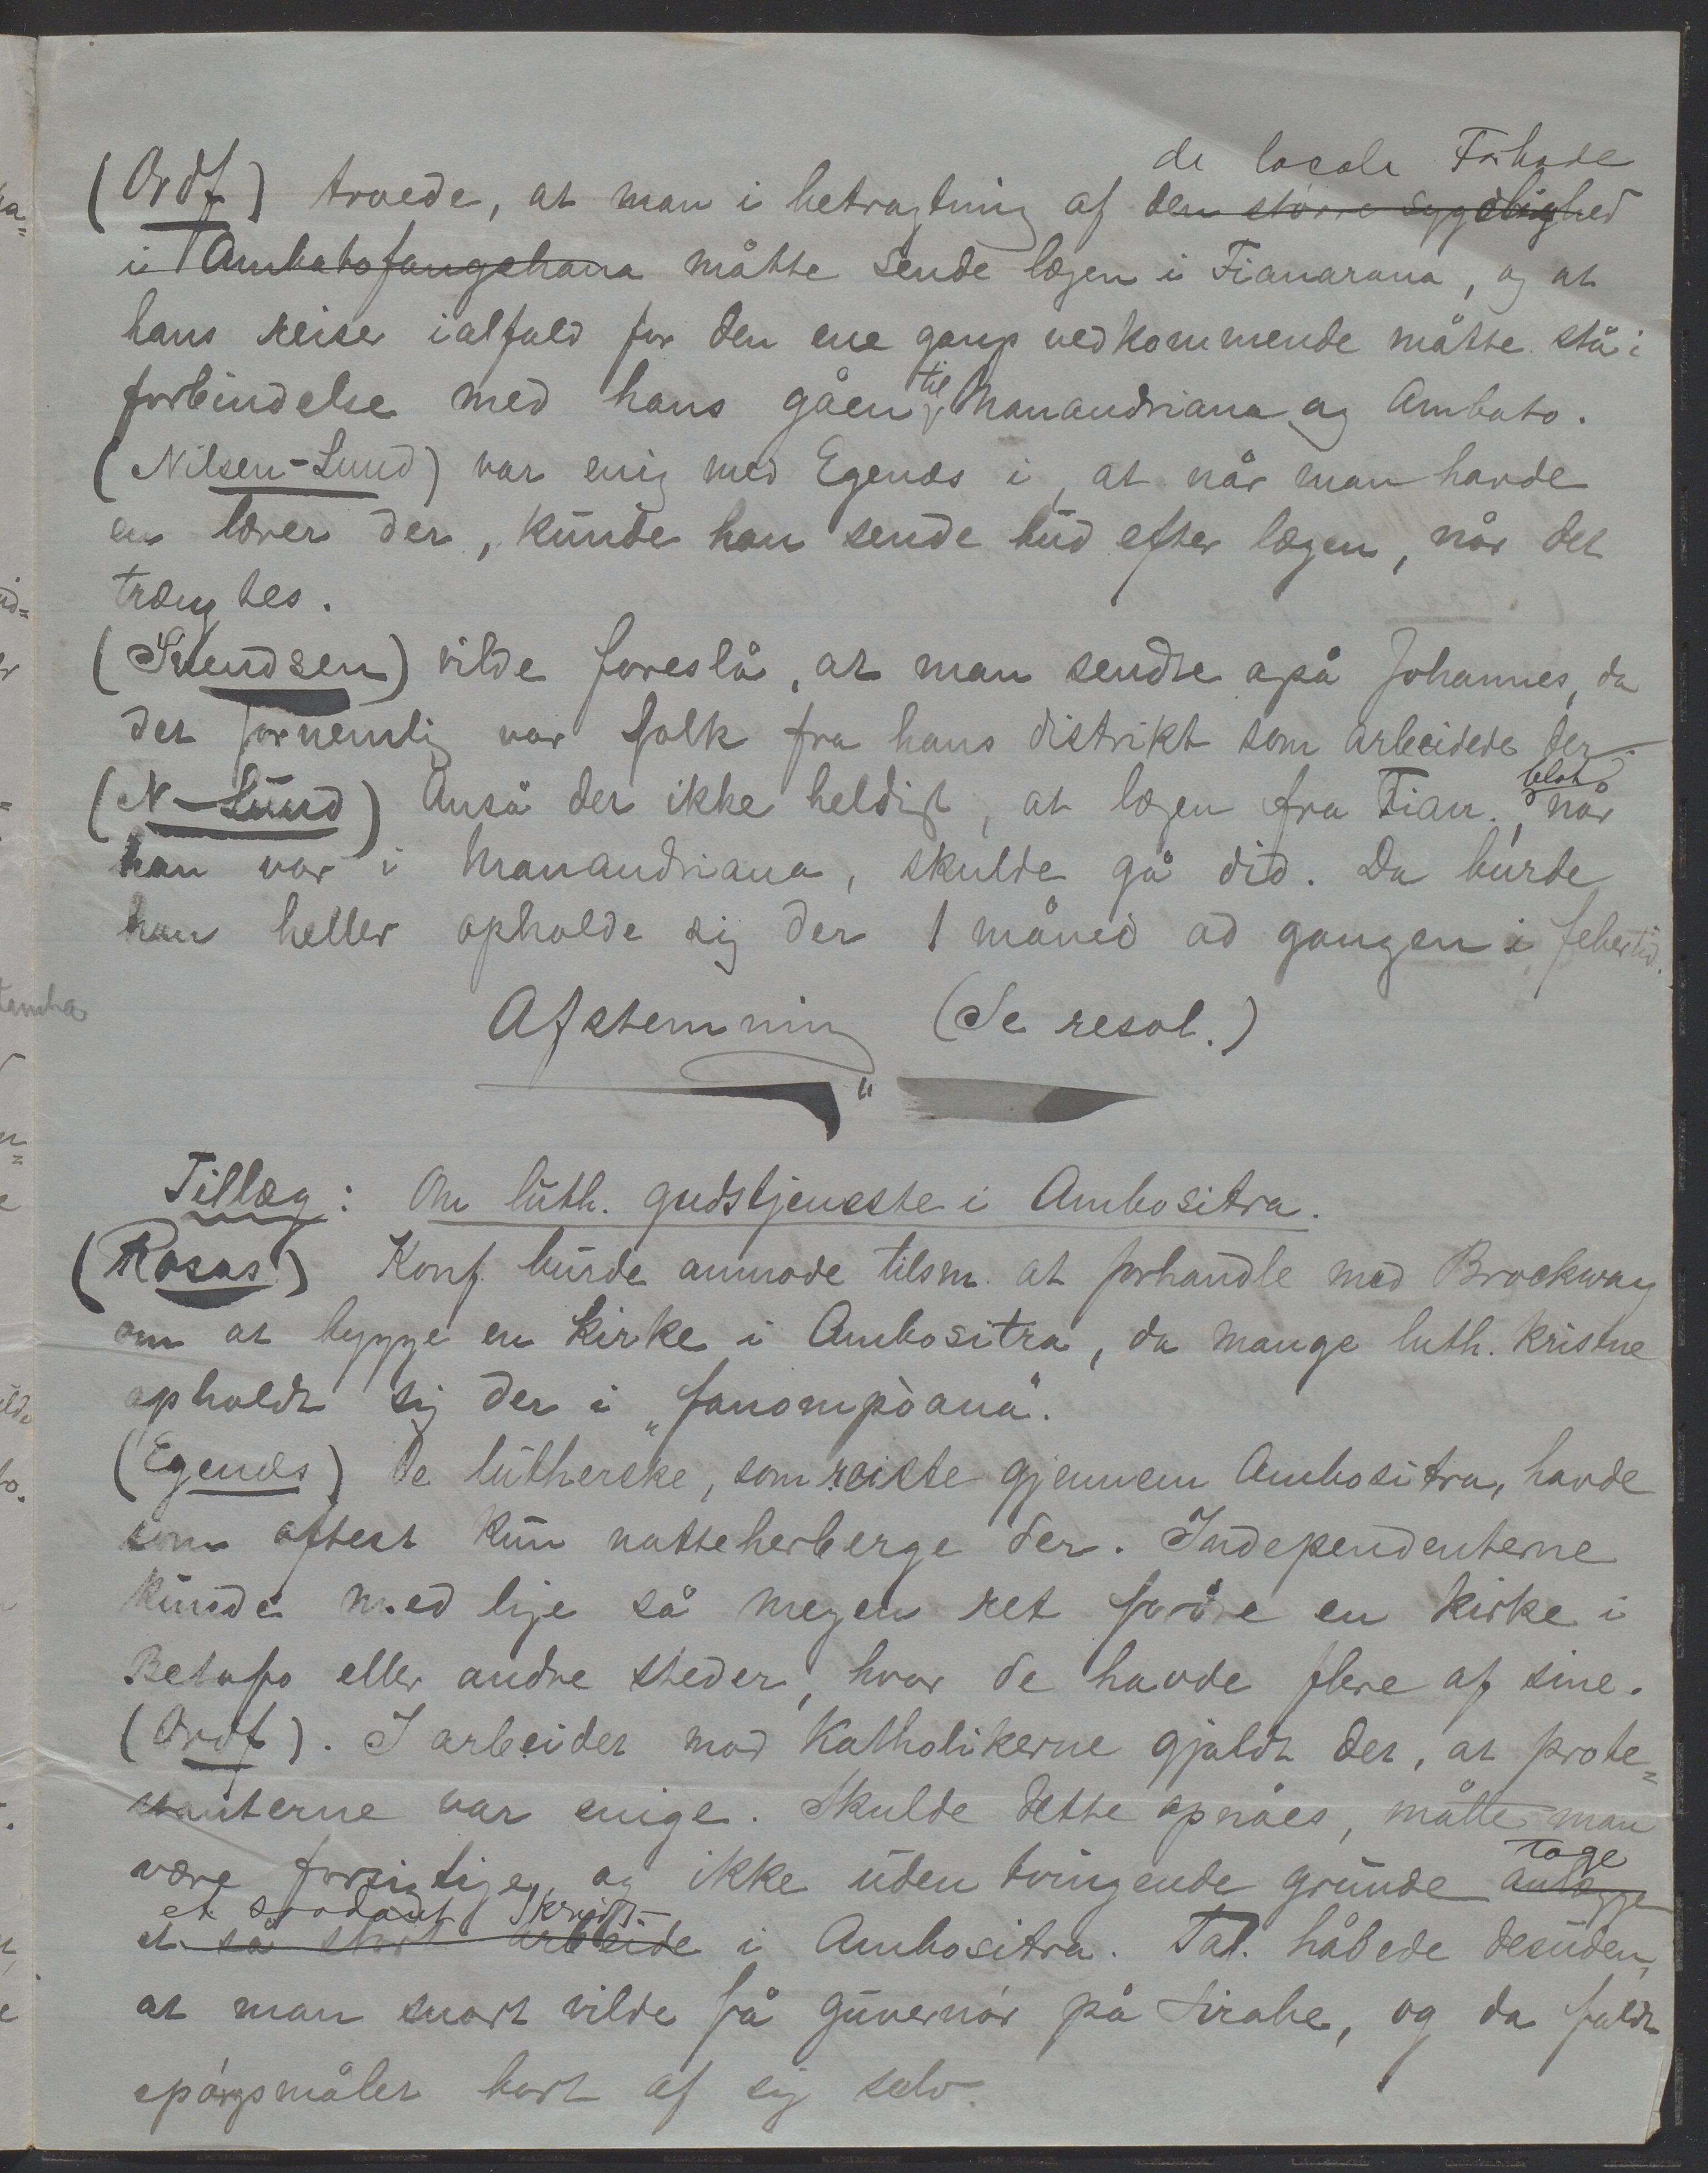 de locale Forholde
(Ordf) troede, at man i betragtning af den større sygelighed
i Ambatofangehana måtte sende lægen i Fianarana, og at
hans reise ialfald for den ene gang vedkommende måtte stå i
forbindelse med hans gåen til Manandriana og Ambato.
(Nilsen-Lund) var enig med Egenæs i, at når man havde
en lærer der, kunde han sende bud efter lægen, når det
trængtes.
(Svendsen) vilde foreslå, at man sendte også Johannes, da
det fornemlig var folk fra hans distrikt som arbeidede der.
(N-Lund) Anså det ikke heldigt, at lægen fra Fian., blot når
han var i Manandriana, skulde gå did. Da burde
han heller opholde sig der 1 måned ad gangen i febertid.
Afstemning (Se resol.)
Tillæg: Om luth. gudstjeneste i Ambositra.
(Rosas) Konf. burde anmode tilsm. at forhandle med Brockway
om at bygge en kirke i Ambositra, da mange luth. kristne
opholdt sig der i "fanompòana".
(Egenæs) De lutherske, som reiste gjennem Ambositra, havde
som oftest kun natteherberge der. Independenterne
kunde med lige så megen ret fordre en kirke i
Betafo eller andre steder, hvor de havde flere af sine.
(Ordf). I arbeidet mod Katholikerne gjaldt det, at prote=
stanterne var enige. Skulde dette opnåes, måtte man
være forsigtige og ikke uden tvingende grunde anlægge tage
et saadant Skridt
et så stort arbeide i Ambositra. Tal. håbede desuden,
at man snart vilde få guvernör på Sirabe, og da faldt
spörgsmålet bort af sig selv.